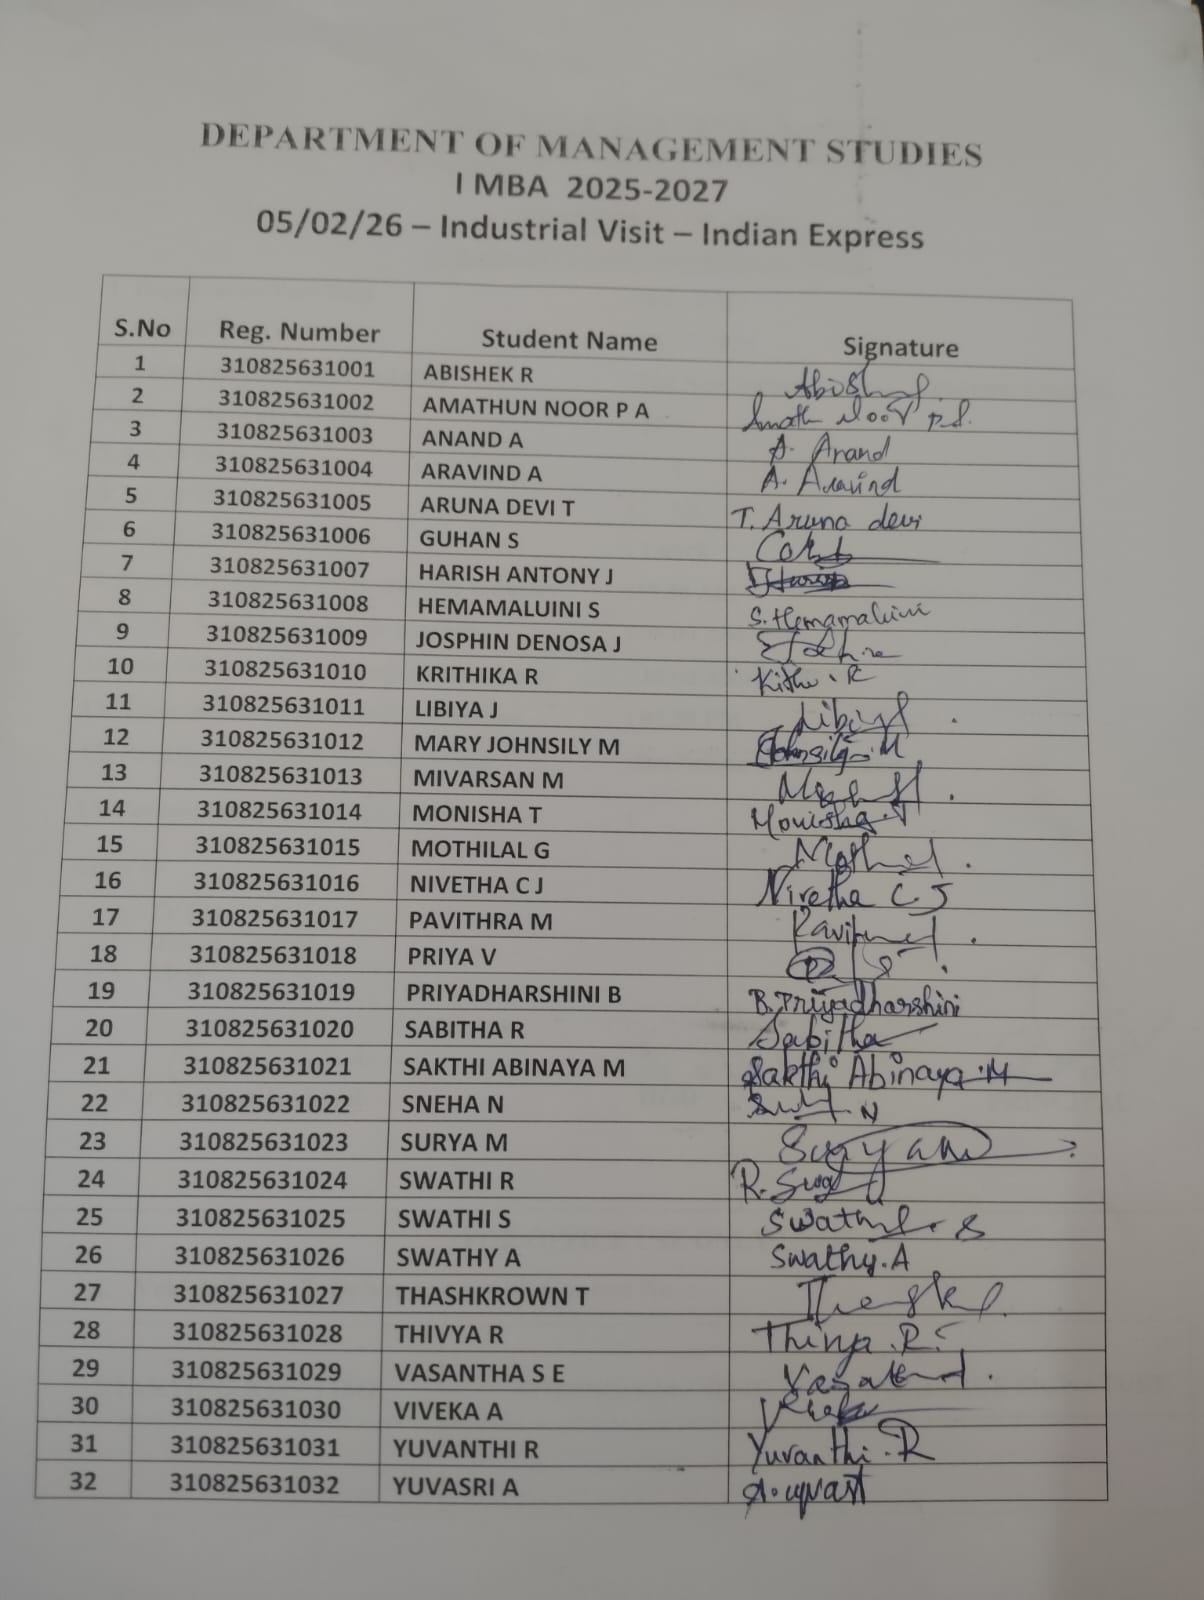 DEPARTMENT OF MANAGEMENT STUDIES
I MBA 2025-2027
05/02/26 – Industrial Visit – Indian Express
S.No Reg. Number Student Name Signature
1 310825631001 ABISHEK R
2 310825631002 AMATHUN NOOR P A
3 310825631003 ANAND A A. Anand
4 310825631004 ARAVIND A A. Aravind
5 310825631005 ARUNA DEVI T T. Aruna devi
6 310825631006 GUHAN S
7 310825631007 HARISH ANTONY J
8 310825631008 HEMAMALUINI S S. Hemamaluini
9 310825631009 JOSPHIN DENOSA J
10 310825631010 KRITHIKA R
11 310825631011 LIBIYA J
12 310825631012 MARY JOHNSILY M Johnsily M
13 310825631013 MIVARSAN M
14 310825631014 MONISHA T Monisha.T
15 310825631015 MOTHILAL G
16 310825631016 NIVETHA C J Nivetha C J
17 310825631017 PAVITHRA M
18 310825631018 PRIYA V
19 310825631019 PRIYADHARSHINI B B. Priyadharshini
20 310825631020 SABITHA R Sabitha
21 310825631021 SAKTHI ABINAYA M Sakthi Abinaya.M
22 310825631022 SNEHA N
23 310825631023 SURYA M
24 310825631024 SWATHI R
25 310825631025 SWATHI S
26 310825631026 SWATHY A Swathy.A
27 310825631027 THASHKROWN T
28 310825631028 THIVYA R Thivya.R
29 310825631029 VASANTHA S E
30 310825631030 VIVEKA A
31 310825631031 YUVANTHI R Yuvanthi.R
32 310825631032 YUVASRI A